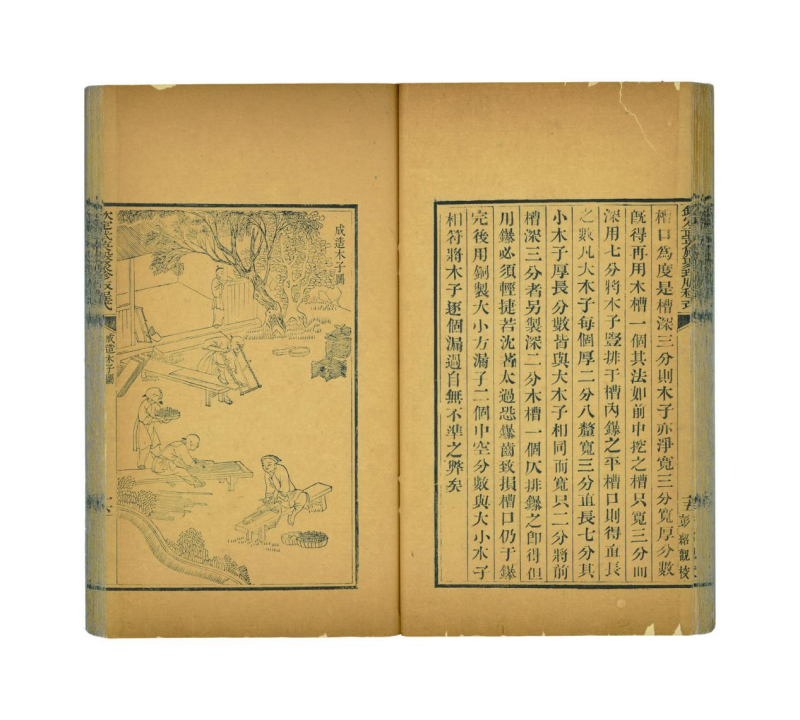 欽定武英殿聚珍版程式
槽口為度是槽深三分則木子亦淨寬三分寬厚分數
既得再用木槽一個其法如前中挖之槽只寬三分而
深用七分將木子豎排于槽內鑤之平槽口則得直長
之數凡大木子每個厚二分八釐寬三分直長七分其
小木子厚長分數皆與大木子相同而寬只二分將前
槽深三分者另製深二分木槽一個仄排鑤之卽得但
用鑤必須輕捷若沈著太過恐鑤齒致損槽口仍于鑤
完後用銅製大小方漏子二個中空分數與大小木子
相符將木子逐個漏過自無不準之弊矣
彭紹觀校
成造木子圖
欽定武英殿聚珍版程式
成造木子圖